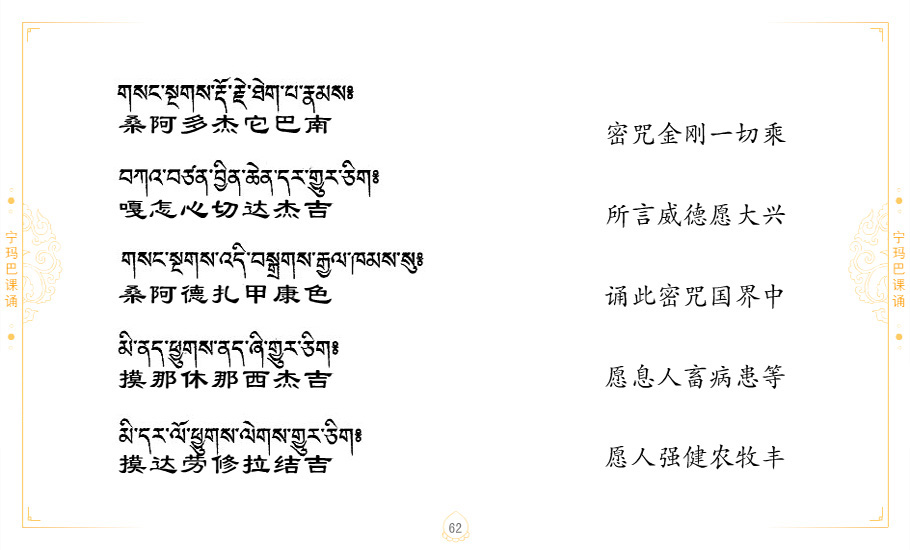 གསང་སྔགས་རྡོ་རྗེ་ཐེག་པ་རྣམས༔
桑阿多杰它巴南
密咒金刚一切乘
བཀའ་བཙན་བྱིན་ཆེན་དར་གྱུར་ཅིག༔
嘎怎心切达杰吉
所言威德愿大兴
གསང་སྔགས་འདི་བསྒྲགས་རྒྱལ་ཁམས་སུ༔
桑阿德扎甲康色
诵此密咒国界中
མི་ནད་ཕྱུགས་ནད་ཞི་གྱུར་ཅིག༔
摸那休那西杰吉
愿息人畜病患等
མི་དར་ལོ་ཕྱུགས་ལེགས་གྱུར་ཅིག༔
摸达劳修拉结吉
愿人强健农牧丰
宁玛巴课诵
宁玛巴课诵
62